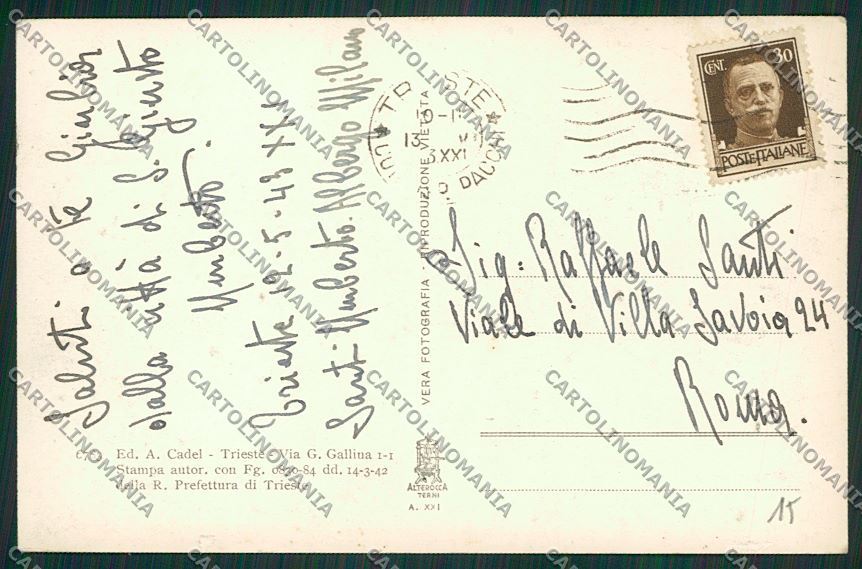 Saluti a te Giulia
dalla città di S. Giusto
Umberto.
Trieste 12-5-43 XXI
Santi Umberto. Albergo Milano
6761 Ed. A. Cadel - Trieste - Via G. Gallina 1-1
Stampa autor. con Fg. 0830-84 dd. 14-3-42
della R. Prefettura di Trieste
VERA FOTOGRAFIA - RIPRODUZIONE VIETATA
ALTEROCCA
TERNI
A. XXI
TRIESTE
13
XXI
PACCHI
CENT. 30
POSTE ITALIANE
Sig: Raffaele Santi
Viale di Villa Savoia 24
Roma.
15
CARTOLINOMANIA